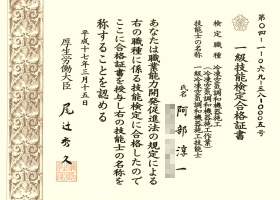 第04-1-069-13-10005号
一級技能検定合格証書
検定職種 冷凍空気調和機器施工
(冷凍空気調和機器施工作業)
技能士の名称 一級冷凍空気調和機器施工技能士
氏名 阿部淳一
あなたは職業能力開発促進法の規定による
右の職種に係る技能検定に合格したので
ここに合格証書を授与し右の技能士の名称を
称することを認める
平成十七年三月十五日
厚生労働大臣 尾辻秀久